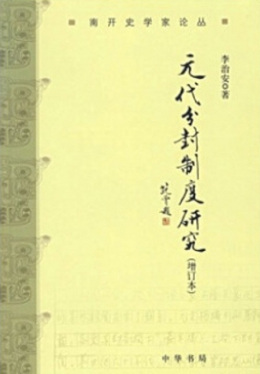 南开史学家论丛
李治安◎著
元代分封制度研究
(增订本)
中华书局